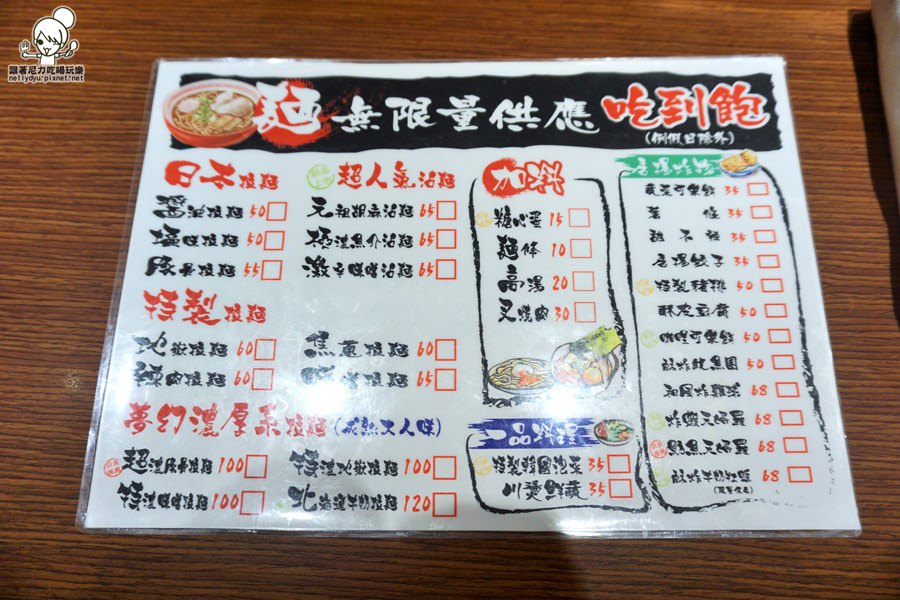 跟著尼力吃喝玩樂
nellydyu.pixnet.net
麵無限量供應吃到飽
(例假日除外)
日本拉麵
醬油拉麵 50
塩味拉麵 50
豚骨拉麵 55
超人氣沾麵
元祖胡麻沾麵 65
極濃魚介沾麵 65
激辛味噌沾麵 65
特製拉麵
地獄拉麵 60
辣肉拉麵 60
焦蔥拉麵 60
味噌拉麵 65
夢幻濃厚系拉麵(成熟大人味)
超濃豚骨拉麵 100
特濃味噌拉麵 100
特濃地獄拉麵 100
北海道牛奶拉麵 120
加料
糖心蛋 15
麵條 10
高湯 20
叉燒肉 30
一品料理
特製韓國泡菜 35
川燙鮮蔬 35
居場炸物
蔬菜可樂餅 35
薯條 35
甜不辣 35
居場餃子 35
特製豬排 50
酥皮豆腐 50
咖哩可樂餅 50
酥炸魷魚圈 50
和風炸雞菜 68
炸蝦天婦羅 68
鮭魚天婦羅 68
酥炸牛奶牡蠣 68